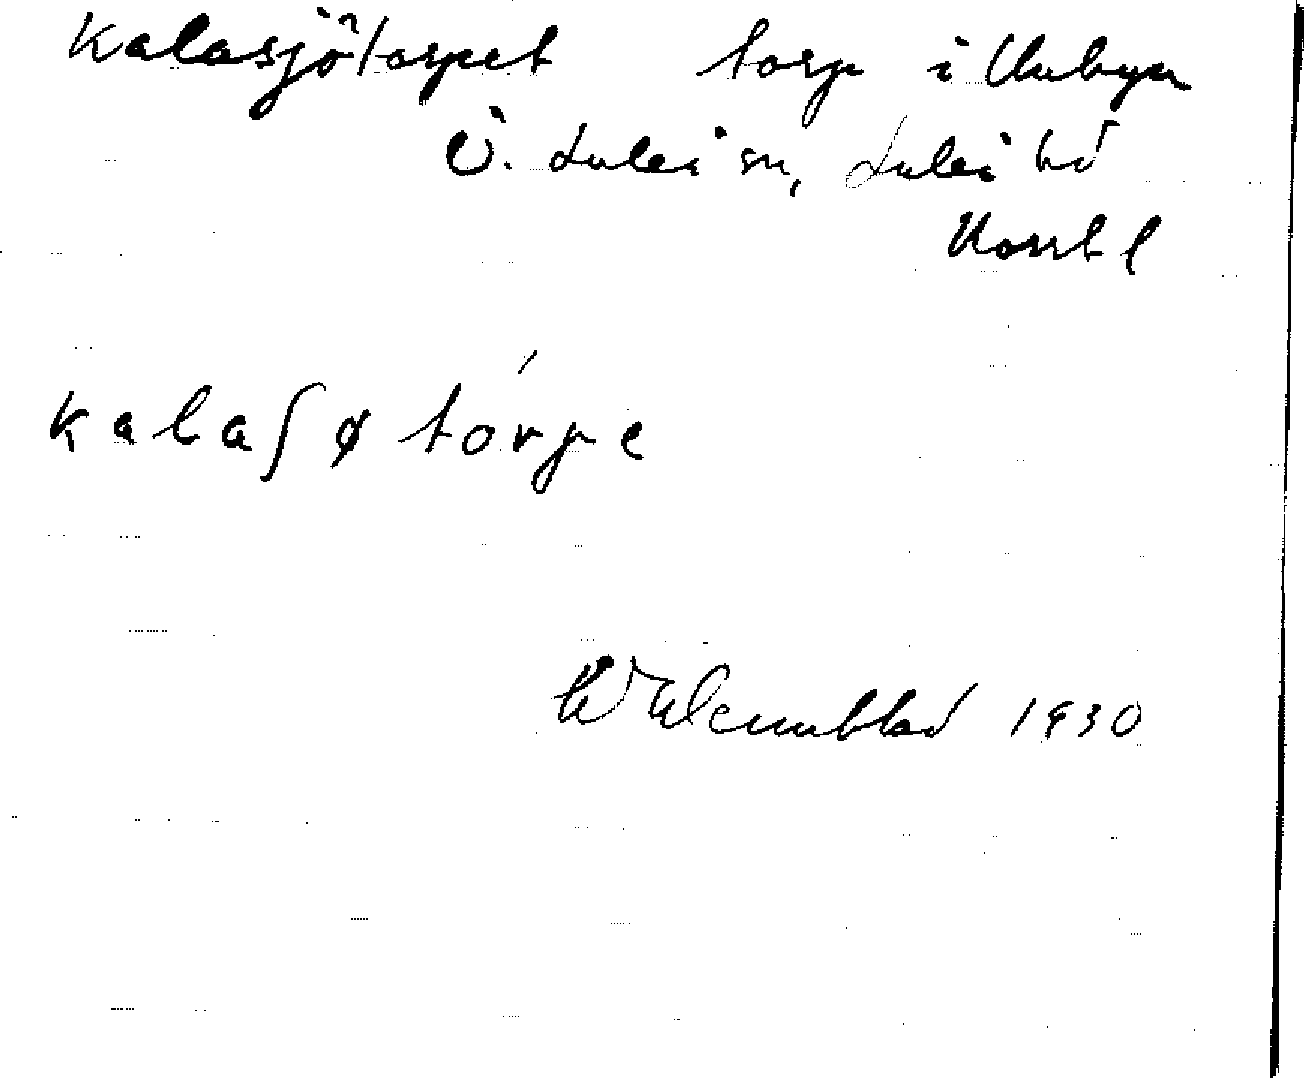 Kalasjötorpet torp i Unbyn
Ö. Luleå sn, Luleå hd
Norrb l
kalaʃø tórpe
Wennblad 1930